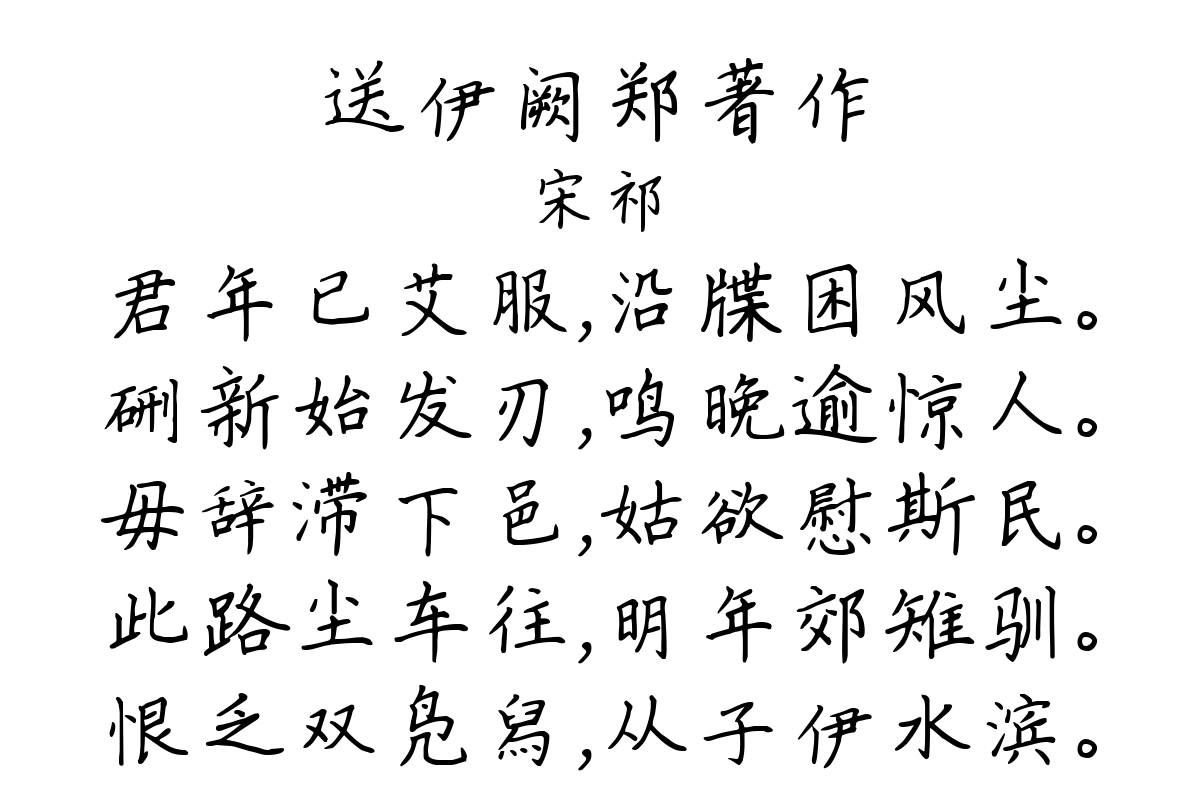 送伊阙郑著作
宋祁
君年已艾服,沿牒困风尘。
硎新始发刃,鸣晚逾惊人。
毋辞滞下邑,姑欲慰斯民。
此路尘车往,明年郊雉驯。
恨乏双凫舄,从子伊水滨。